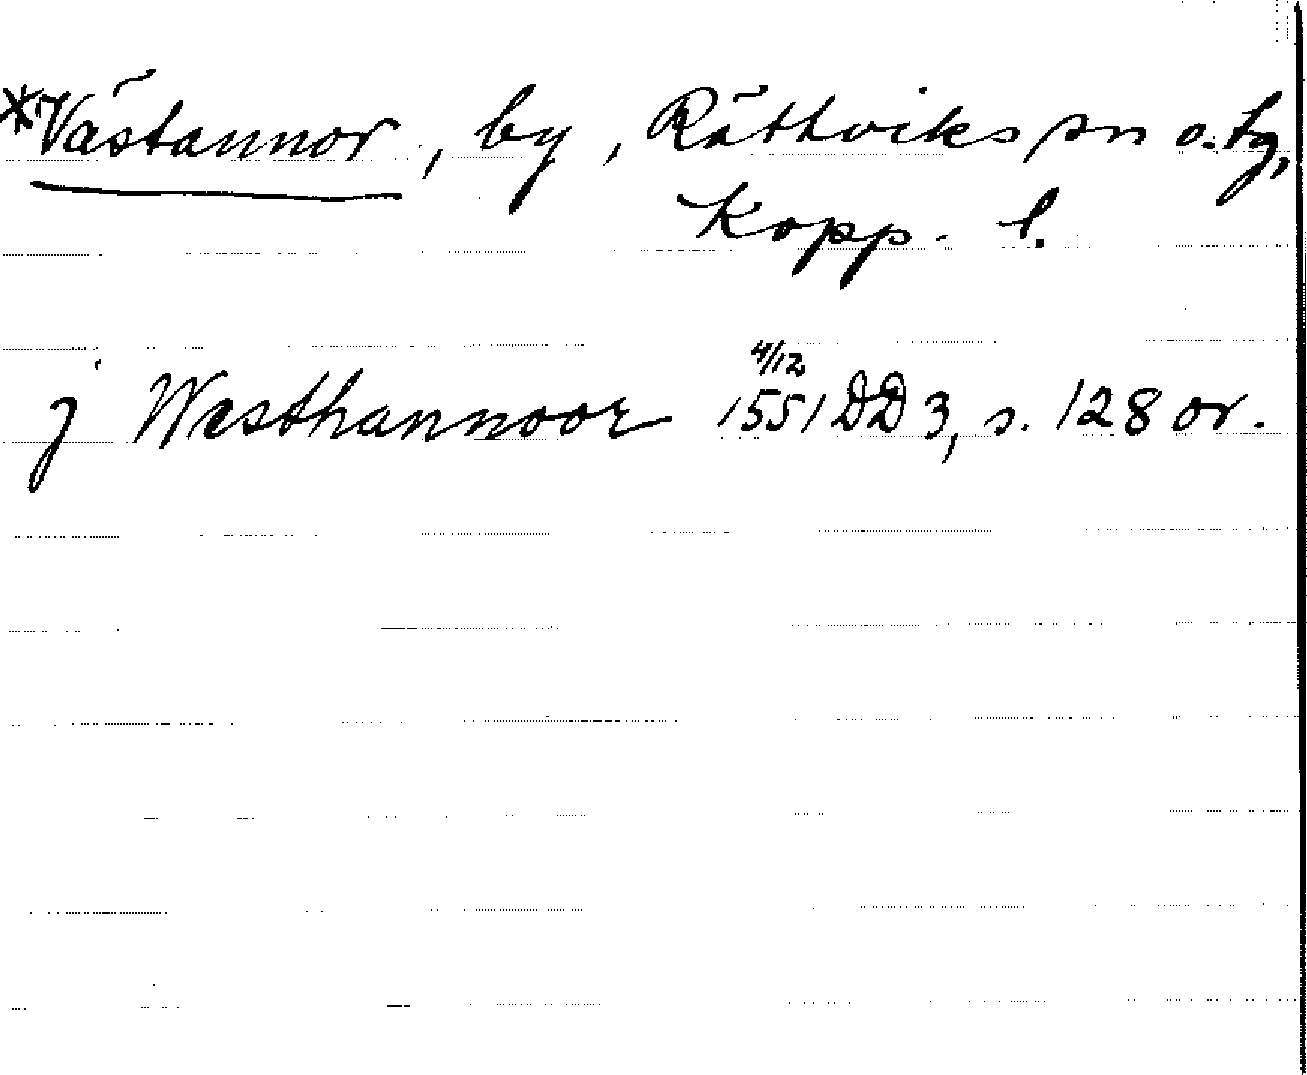 *Västannor, by, Rättviks sn o. tg,
Kopp. l.
j Westhannoor 4/12 1551 DD 3, s. 128 or.